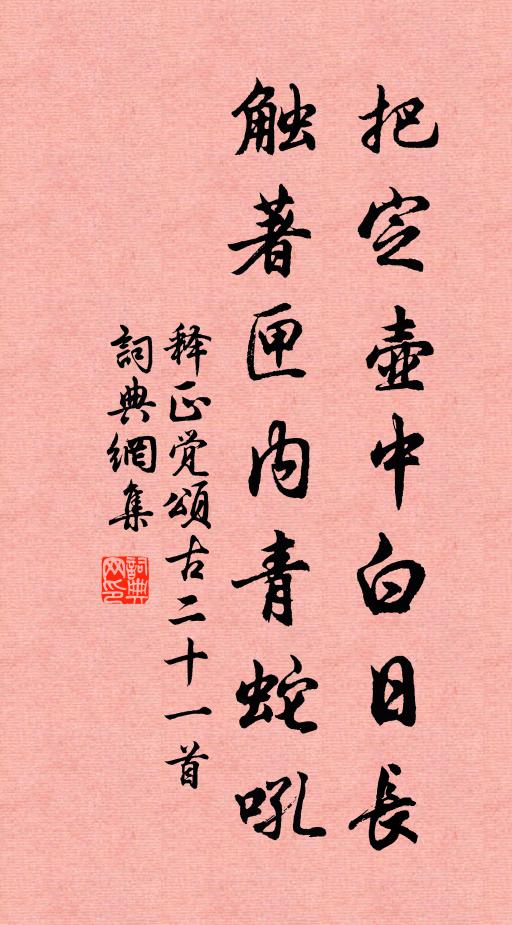 把定壺中白日長
触著匣内青蛇吼
释正觉頌古二十一首
詞典網集
詞典网印